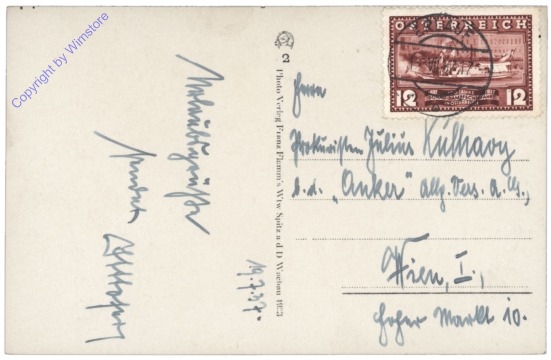 Copyright by Wimstore
sendet
19.7.37.
2
Photo-Verlag Franz Flamm's Wtw Spitz a. d. D. Wachau 1973
ÖSTERREICH
12 12
Herrn
Prokuristen Julius Kulhavy
b. d. „Anker“ allg. Vers. A. G.,
Wien, I.,
Hoher Markt 10.